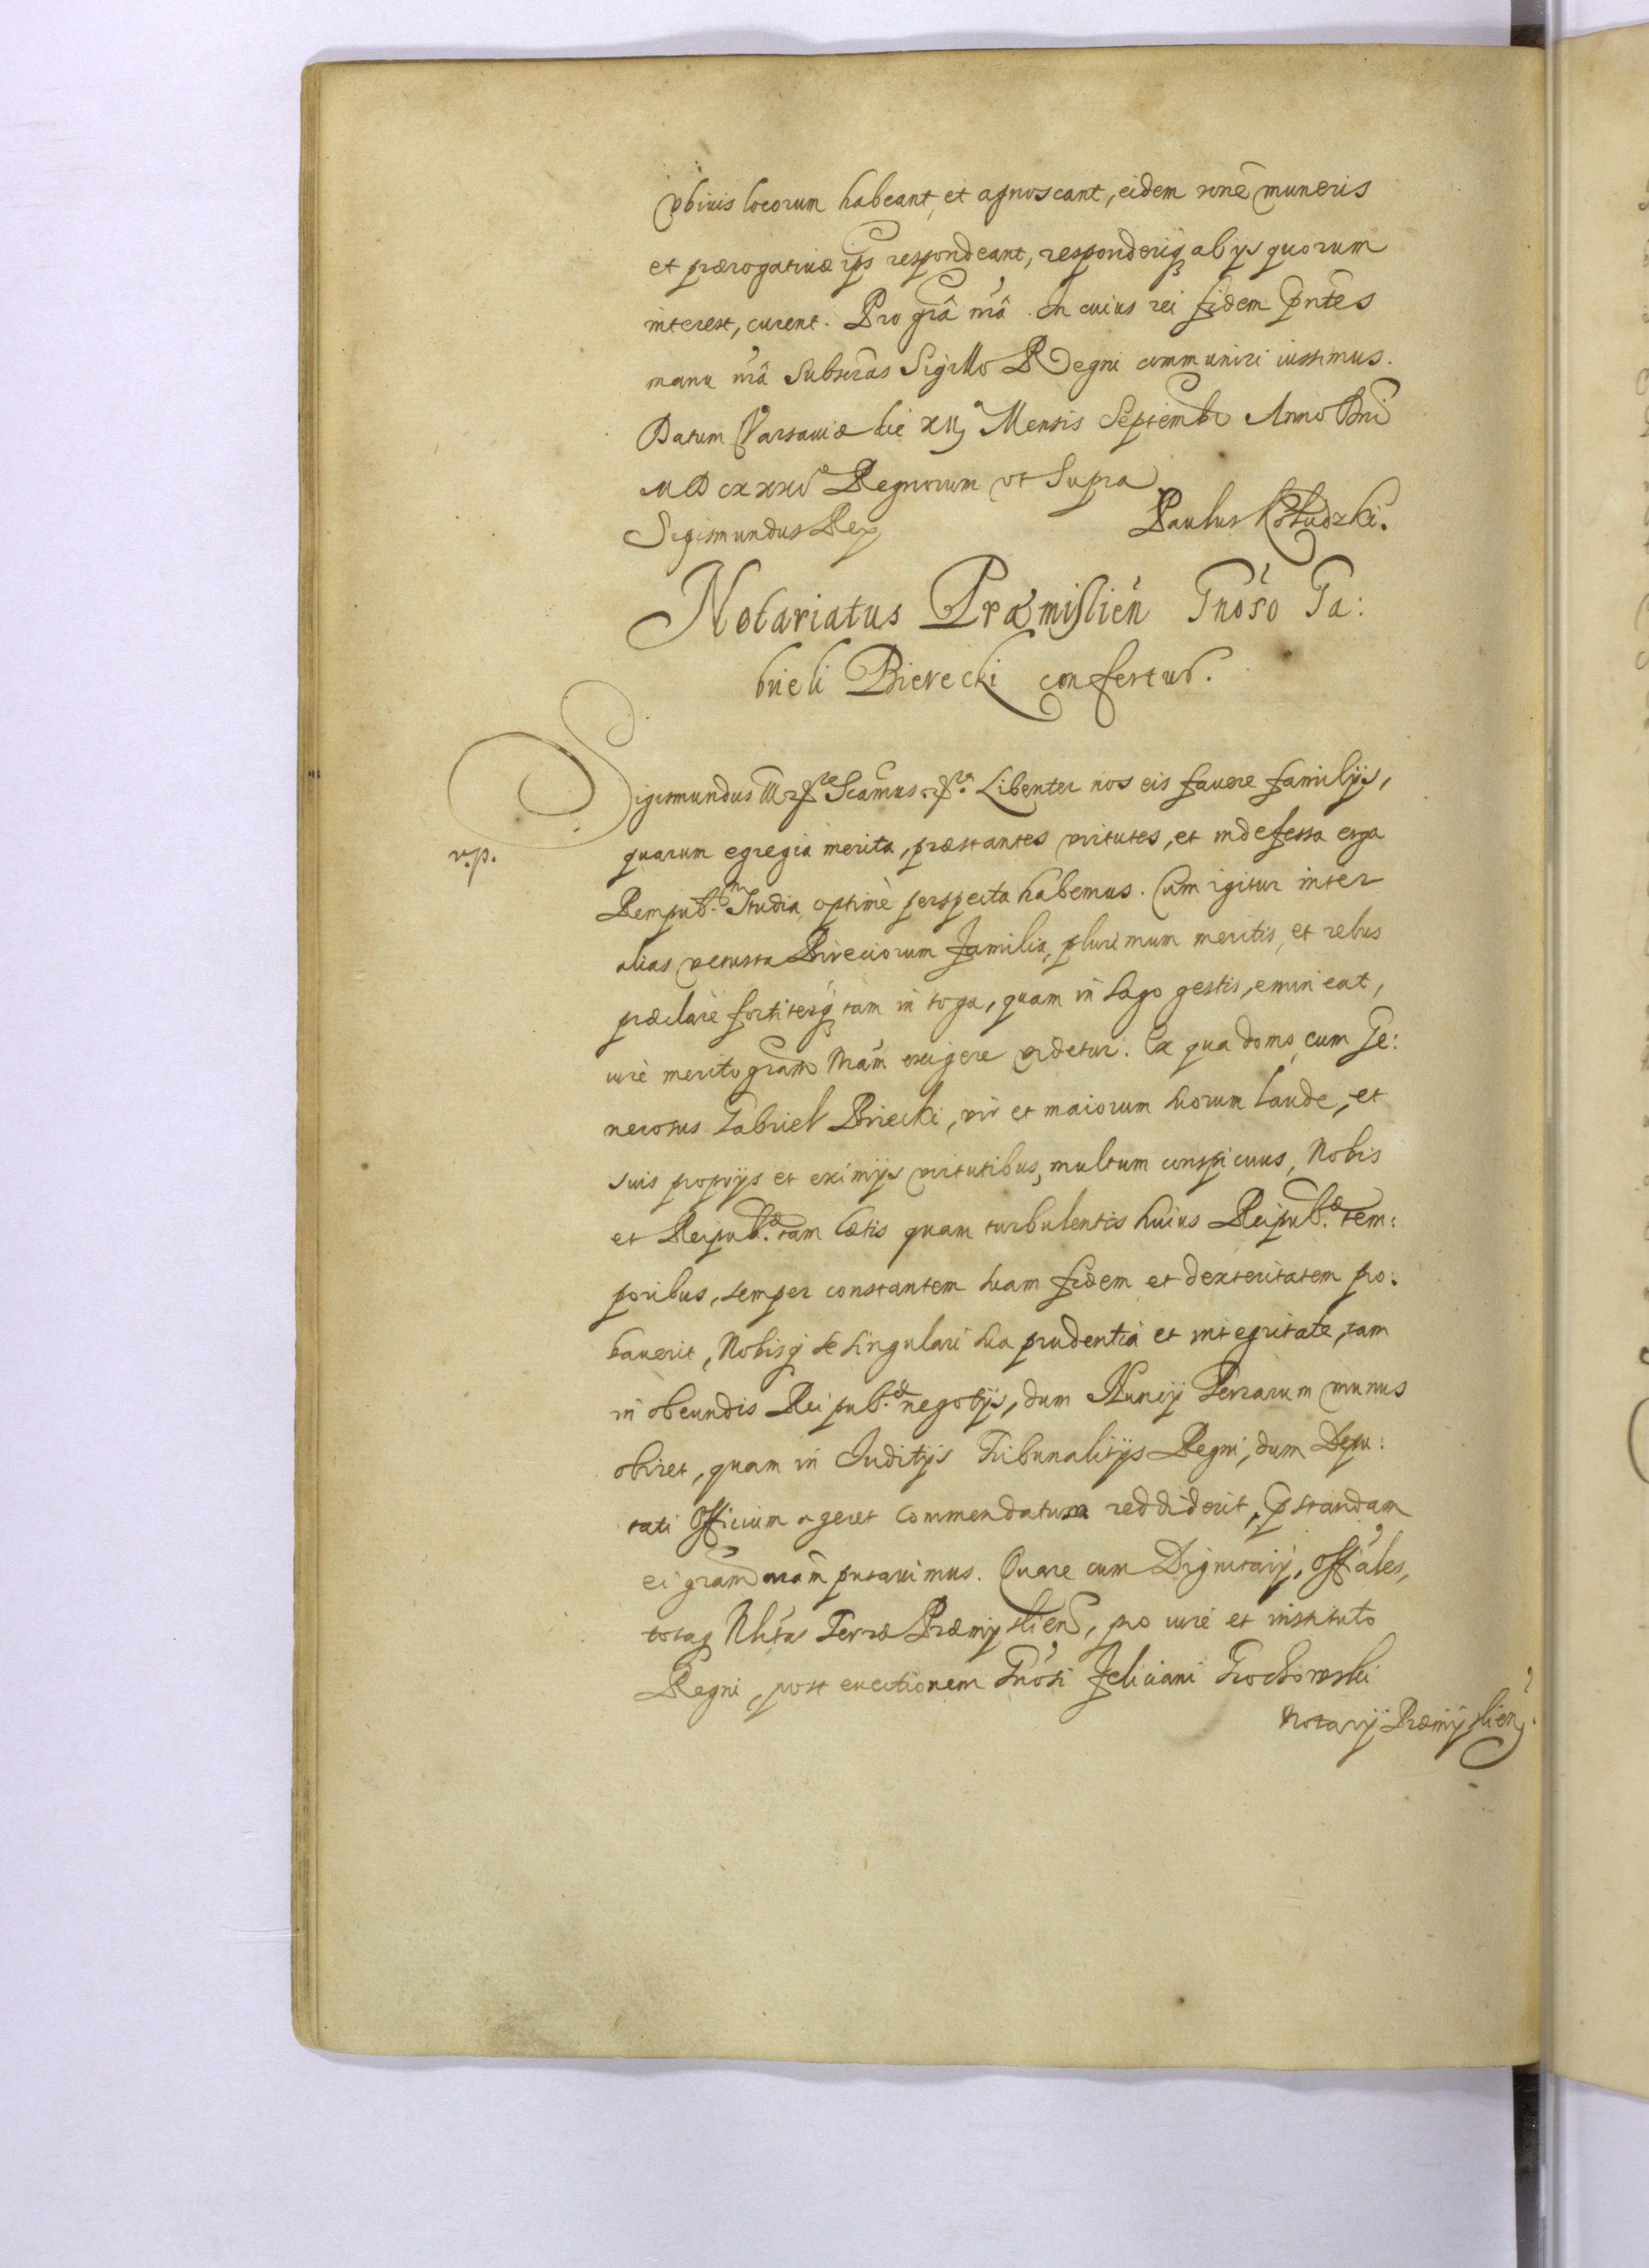 vbiuis locorum habeant, et agnoscant, eidem rõne muneris
et prærogatiuæ ips respondeant, responderiq3 ab ijs quorum
interest, curent. Pro grâ nrâ. In cuius rei fidem pñtes
manu nrâ Subscras Sigillo Regni communiri iussimus.
Datum Varsauiæ die Mensis Septembr Anno Dni
Regnorum vt Supra
Sigismundus Rex Paulus
Notariatus Præmislien̄ Gnoso Ga:
brieli Pierecki confertur.
Sigismundus III Scamus Libenter nos eis fauere familijs,
v.p.
quarum egregia merita, præstantes virtutes, et indefessa erga
Rempub.m studia, optimè perspecta habemus. Cum igitur inter
alias vetusta Familia, plurimum meritis, et rebus
præclarè fortiterq3 tam in toga, quam in sago gestis, emineat,
iurè merito gram nram exigere videtur. Ex qua domo, cum Ge:
nerosus Gabriel vir et maiorum suorum laude, et
suis proprijs et eximijs virtutibus, multum conspicuus, Nobis
et Reipub.æ tam lætis quam turbulentis huius Reipub.æ tem:
poribus, semper constantem suam fidem et dexteritatem pro:
bauerit, Nobisq3 se singulari sua prudentia et integritate, tam
in obeundis Reipub.æ negotijs, dum Nuncij Terrarum munus
obiret, quam in Iuditijs Tribunalitijs Regni, dum Depu:
tati Officium ageret commendatum reddiderit, pstandam
ei gram nram putauimus. Quare cum Dignitarij, Offales,
totaq3 Nlitas Terræ Præmyslien, pro iure et instituto
Regni, post euectionem Gnosi Feliciani Grochowski
Notarij Præmyslien.